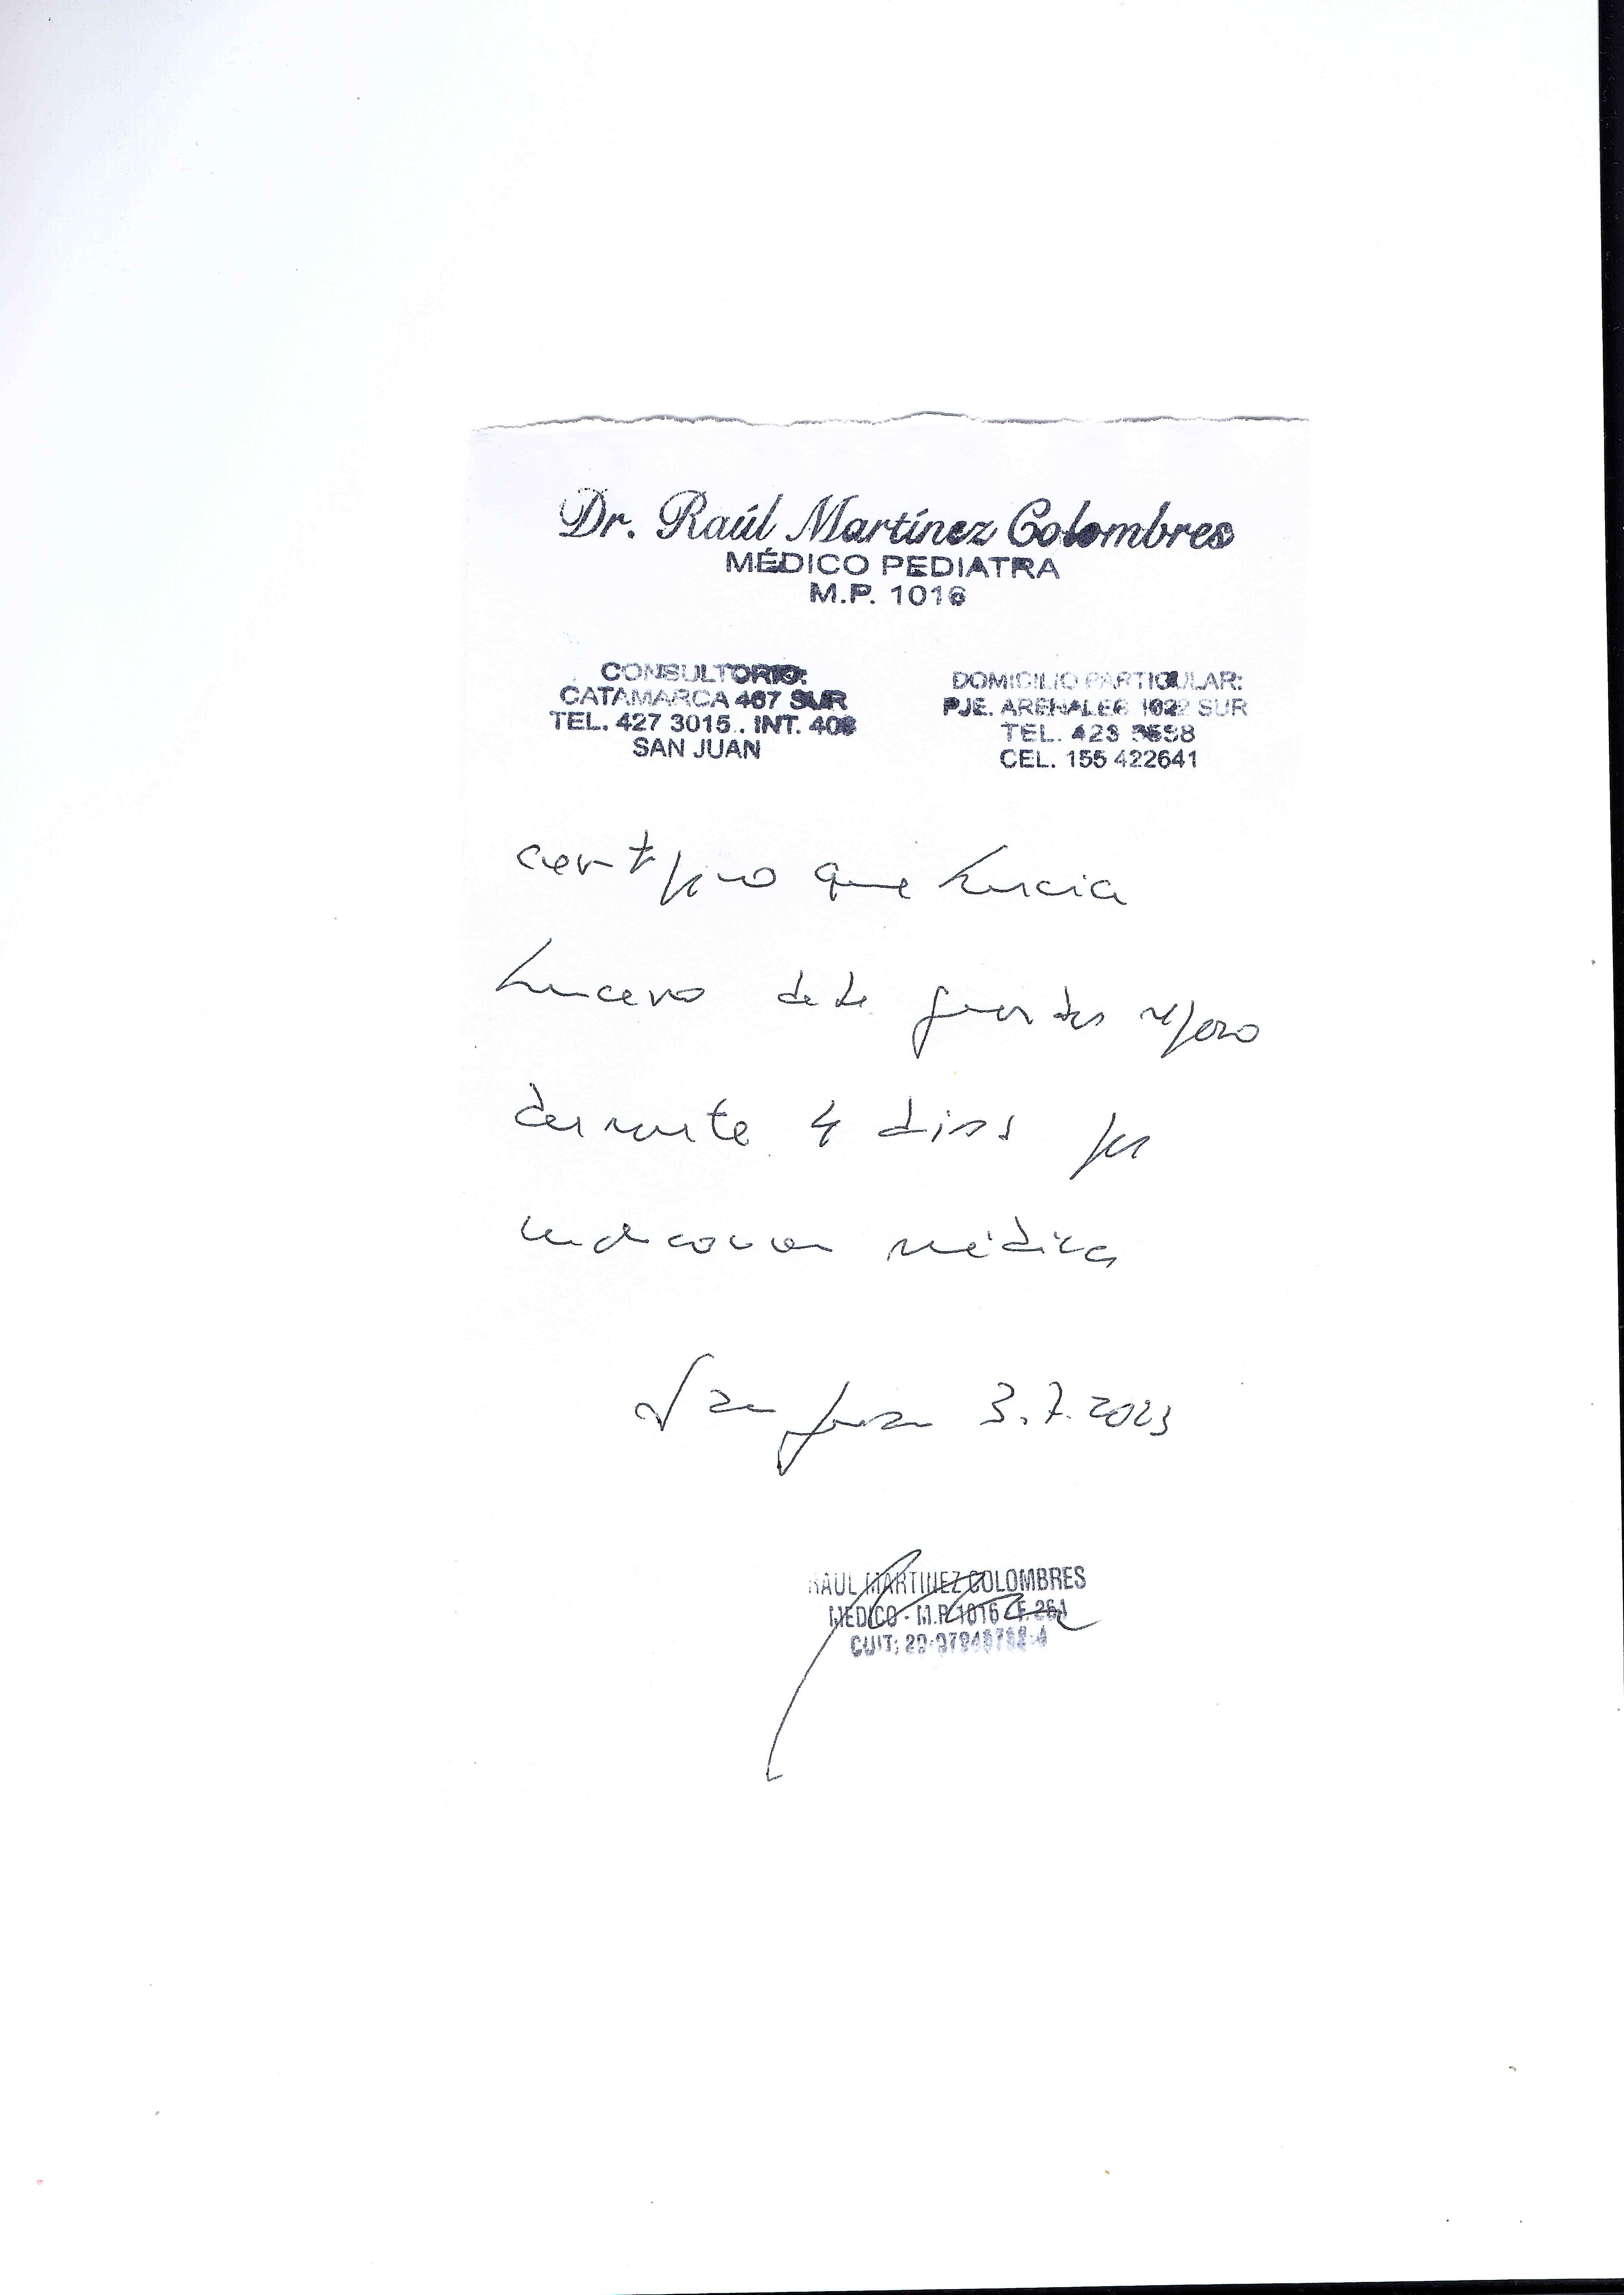 Dr. Raúl Martínez Colombres
MÉDICO PEDIATRA
M.P. 1016
CONSULTORIO:
CATAMARCA 467 SUR
TEL. 427 3015.. INT. 408
SAN JUAN
DOMICILIO PARTICULAR:
PJE. ARENALES 1022 SUR
TEL. 423
CEL. 155 422641
certifico que Lucia
Lucero debe guardar reposo
durante 4 dias por
indicacion médica
San Juan 3.7.2023
RAUL MARTINEZ COLOMBRES
MEDICO - M.P. 1016
CUIT: